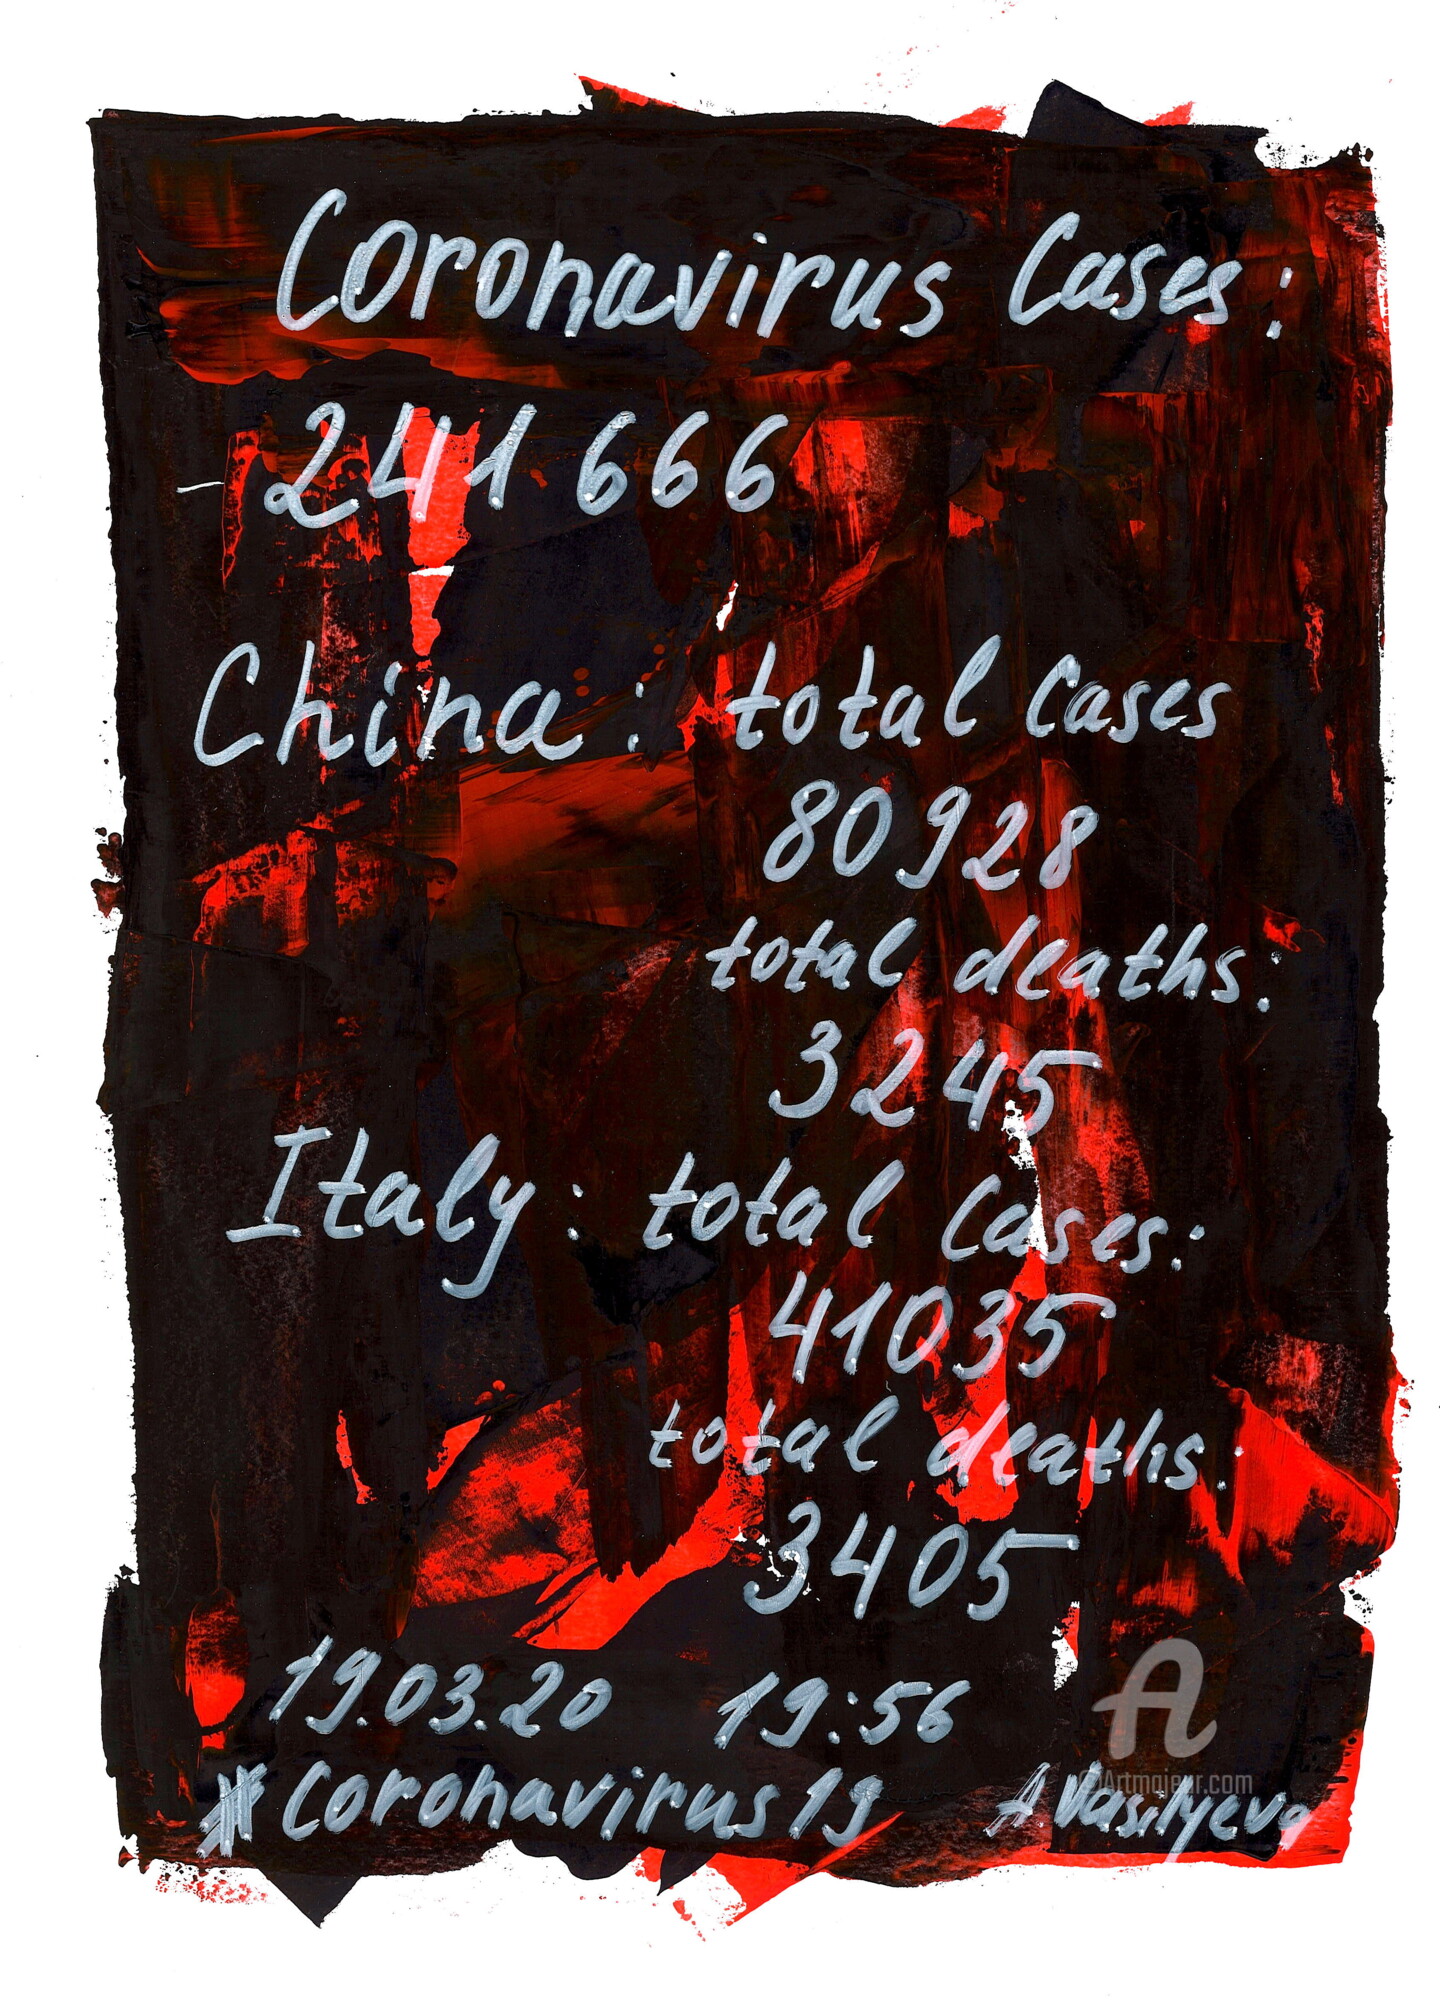 Coronavirus Cases:
241 666
China: total Cases
80928
total deaths:
3245
Italy: total Cases:
41035
total deaths:
3405
19.03.20 19:56
#Coronavirus19 A Vasilyeva
©Artmajeur.com